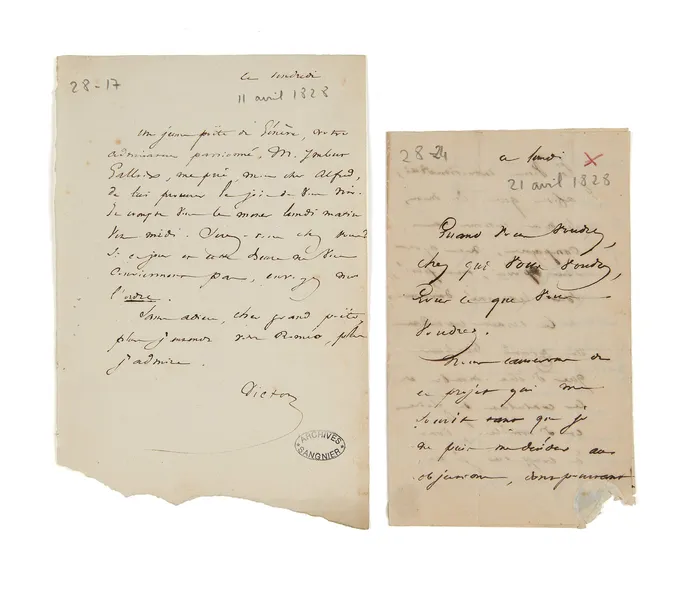 28-17
ce vendredi
11 avril 1828
Un jeune poëte de Genève, votre
admirateur passionné, M. Imbert
Galloix, me prie, mon cher Alfred,
de lui procurer la joie de vous voir.
Je compte vous le mener lundi matin
vers midi. Serez-vous chez vous?
Si ce jour et cette heure ne vous
conviennent pas, envoyez-moi
l'ordre.
Sans adieu, cher grand poëte,
plus j'entends votre Roméo, plus
j'admire.
Victor
ARCHIVES
SANGNIER
28-24
ce lundi
21 avril 1828
Quand vous voudrez,
chez qui vous voudrez,
Pour ce que vous
voudrez.
Nous causerons de
ce projet qui me
sourit sans que je
ne puis me décider aux
objections,